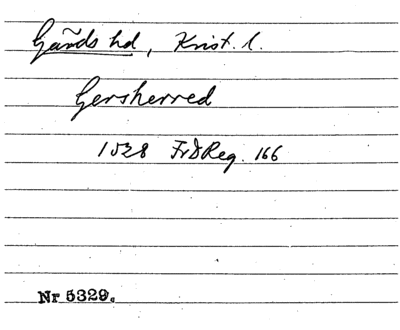 Gãrds hd, Krist. l.
Gersherred
1528 FrIReg. 166
Nr 5329.